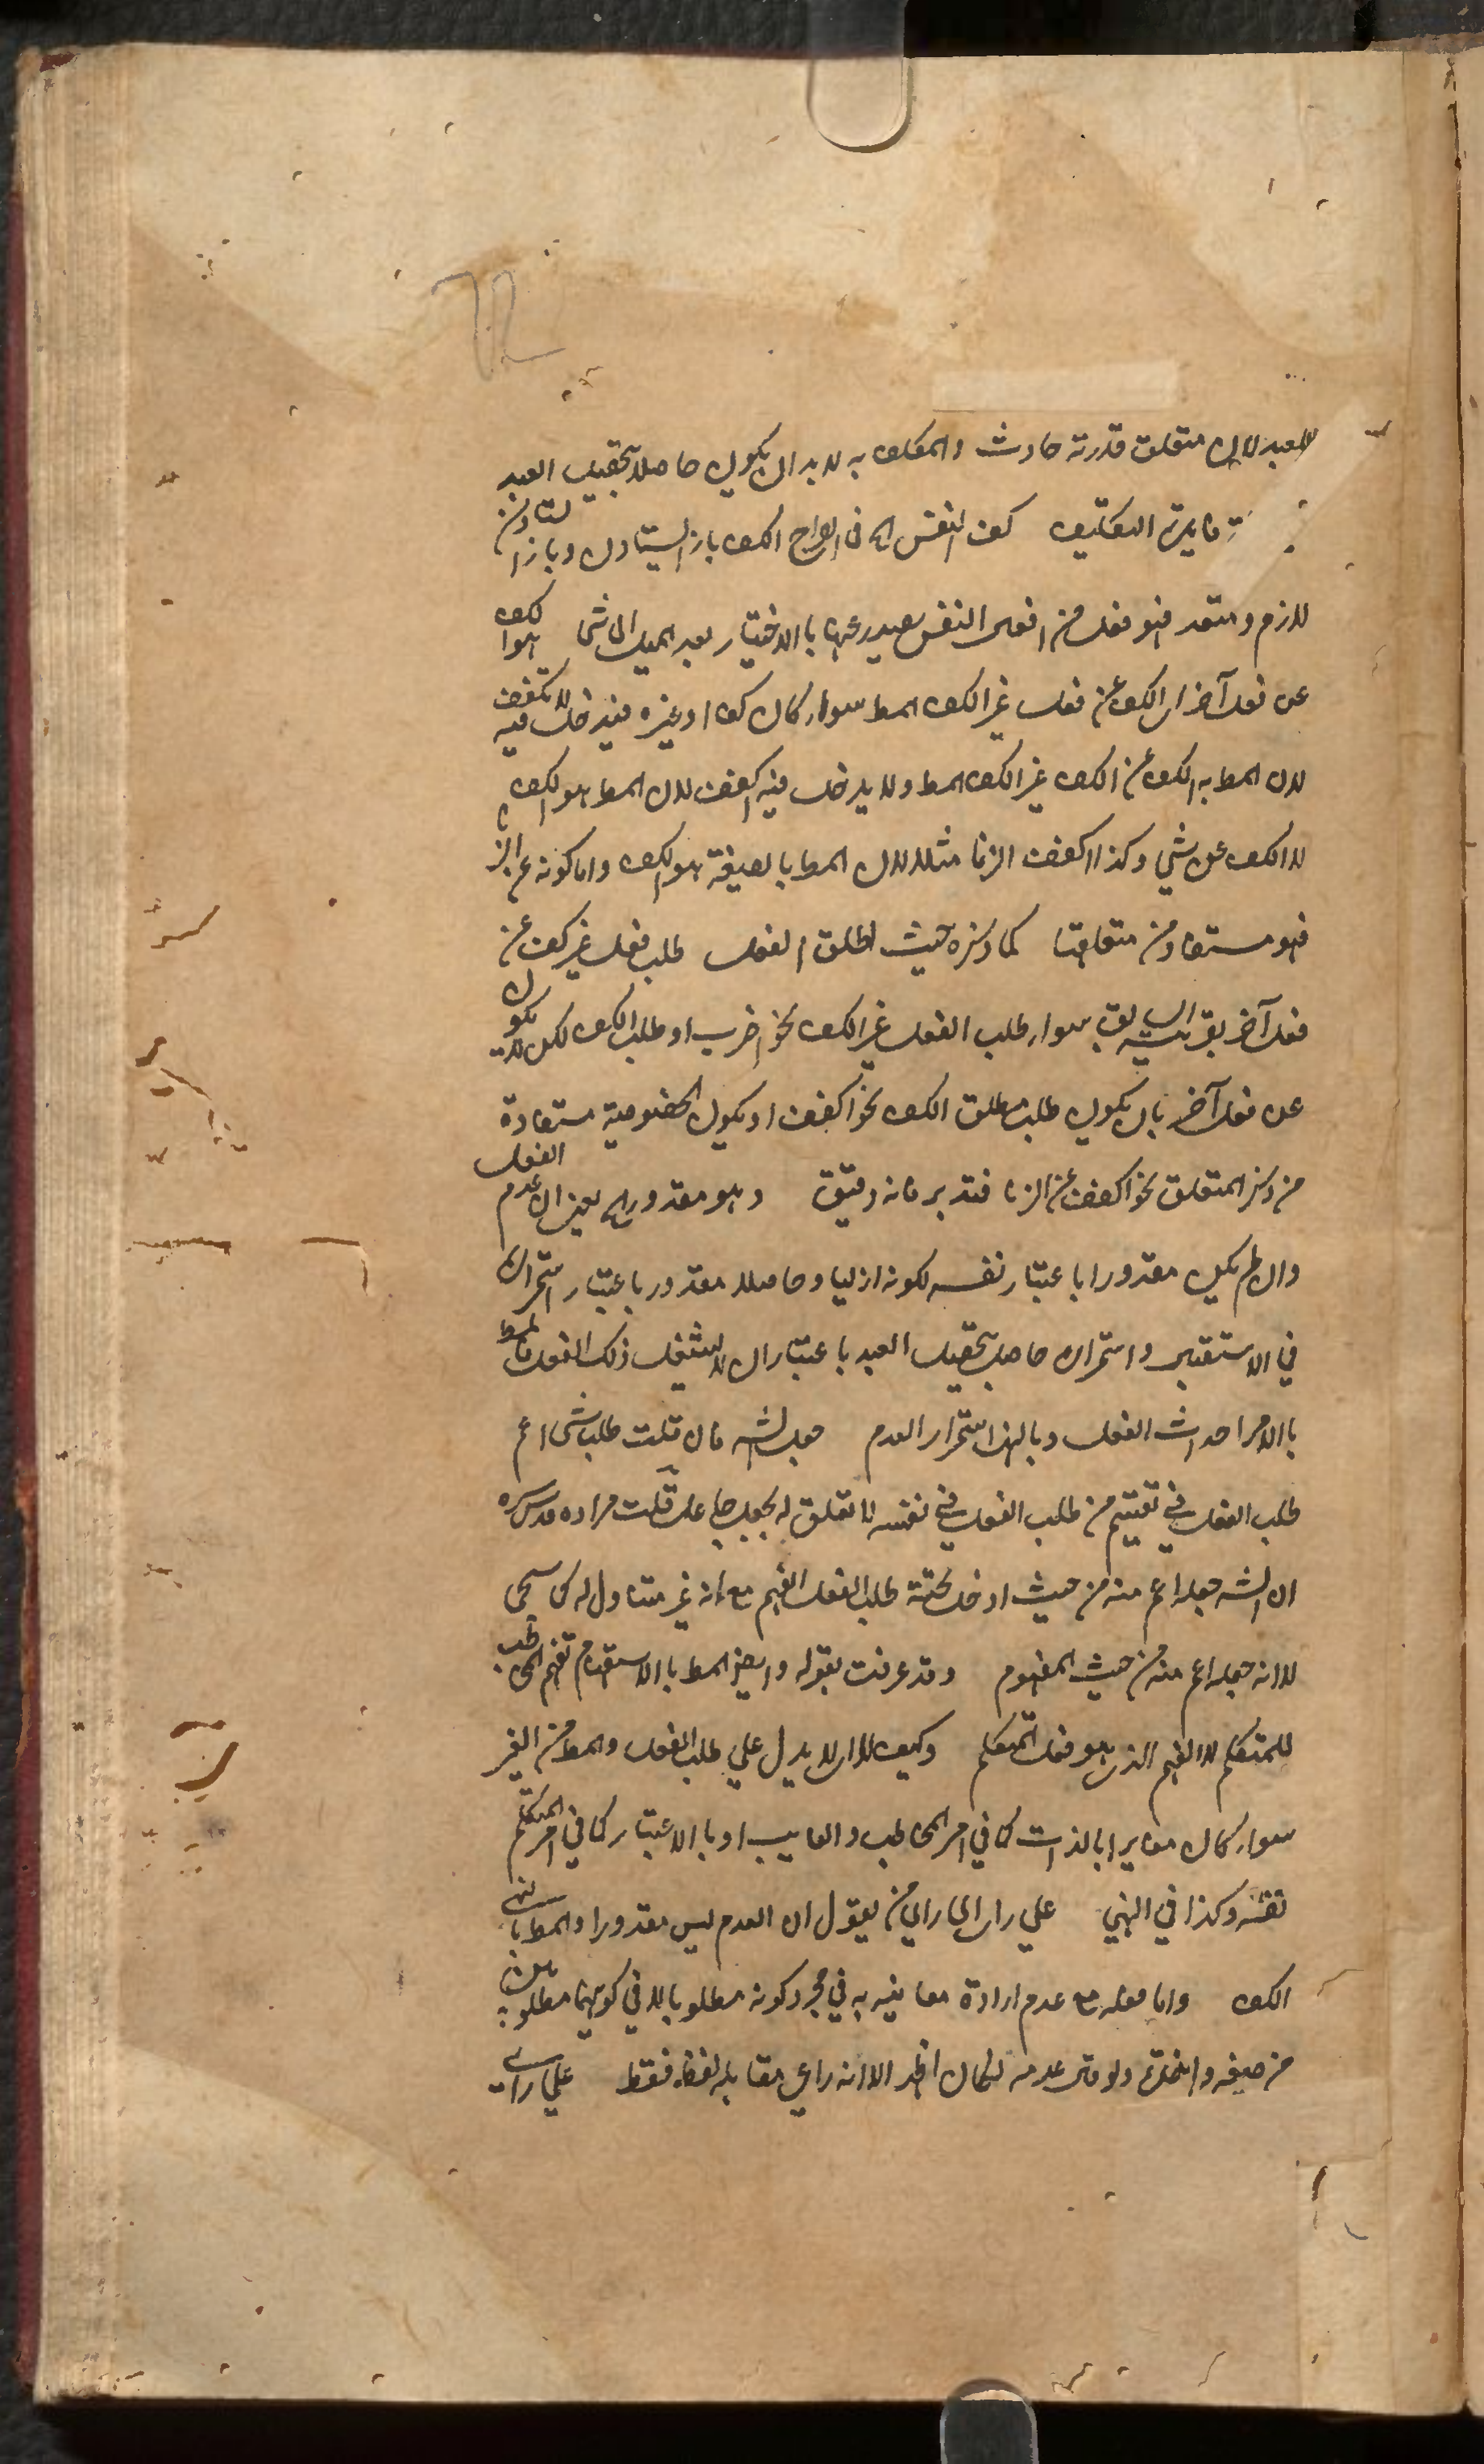 للعبد لان متعلق قدرته حادث والمكلف به لا بد ان يكون حاصلا بتحصيل العبد
فايدة التكليف كف النفس اه في الصراح الكف باز ايستادن وباز استادن
لازم ومتعد فهو فعل من افعال النفس يصدر عنها بالاختيار بعد الميل الى شئ هو الكف
عن فعل آخر اى الكف عن فعل غير الكف المط سواء كان كفا او غيره فيدخل فيه لا تكفف
لان المط به الكف عن الكف غير الكف المط ولا يدخل فيه اكفف لان المط هو الكف
لا الكف عن شي وكذا اكفف الزنا مثلا لان المط بالصيغة هو الكف واما كونه عن الز
فهو مستفاد من متعلقها كما ذكره حيث اطلق الفعل طلب فعل غير كف عن
فعل آخر بقرينة السابق سواء طلب الفعل غير الكف نحو اضرب او طلب الكف لكن لا يكون
عن فعل آخر بان يكون طلب مطلق الكف نحو اكفف او يكون الخصوصية مستفادة
من ذكر المتعلق نحو اكفف عن الزنا فتدبر فانه دقيق وهو مقدور اه يعني ان عدم الفعل
وان لم يكن مقدورا باعتبار نفسه لكونه ازليا وحاصلا مقدور باعتبار استمراره
في الاستقبال واستمراره حاصل بتحصيل العبد باعتبار ان لا يشغل ذلك الفعل فالمط
بالامر احداث الفعل وبالنهي استمرار العدم جعل الشه فان قلت طلب شئ اعم
طلب الفعل في تعميم من طلب الفعل في نفسه لا تعلق له بجعل جاعل قلت مراده قدس سره
ان الشه جعله اعم منه من حيث ادخل تحته طلب الفعل الفهم مع انه غير متناول له كما سيجى
لا انه جعله اعم منه من حيث المفهوم وقد عرفت بقوله وايض المط بالاستفهام تفهيم المخاطب
للمتكلم لا الفهم الذى هو فعل المتكلم وكيف لا اى لا يدل على طلب الفعل والمط من الغير
سواء كان مغايرا بالذات كما في امر المخاطب والغايب او بالاعتبار كما في امر المتكلم
نفسه وكذا في النهي على راى اى راى من يقول ان العدم ليس مقدورا والمط بالنهي
الكف واما فعله مع عدم ارادة معانيه به في مجرد كونه مطلوبا لا في كونهما مطلوبان
من صيغه واحدة ولو قال عدمه لكان اظهر الا انه راعى مقابله لفظه فقط على راى